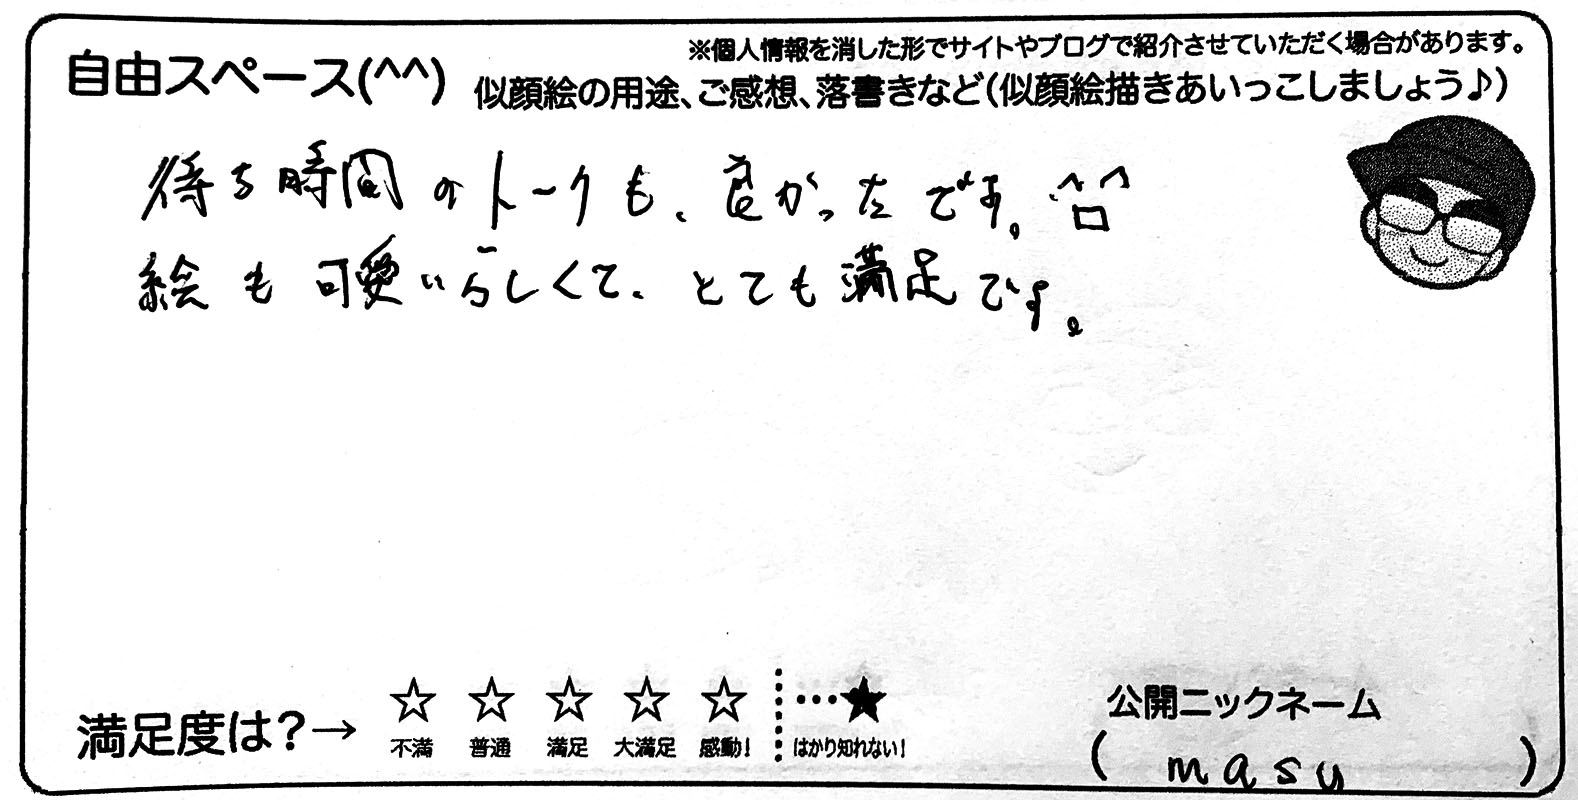 ※個人情報を消した形でサイトやブログで紹介させていただく場合があります。
自由スペース(^^) 似顔絵の用途、ご感想、落書きなど(似顔絵描きあいっこしましょう♪)
待ち時間のトークも、良かったです。^ロ^
絵も可愛いらしくて、とても満足です。
満足度は?→ ☆ ☆ ☆ ☆ ☆ …★
不満 普通 満足 大満足 感動! はかり知れない!
公開ニックネーム
( masu )